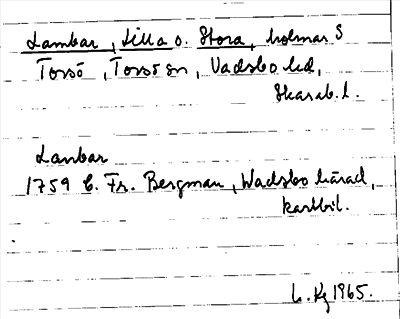 Lambar, Lilla o. Stora, holmar S
Torsö, Torsö sn, Vadsbo hd,
Skarab. l.
Lambar
1759 C. Fr. Bergman, Wadsbo härad,
kartbil.
1965.